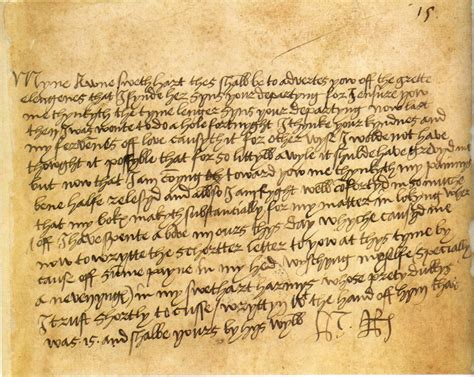 15
Myne awne Swethart thes shall be to advertes yow off the grette
elengenes that I fynde her syns your departyng for I ensure yow
me thynkyth the tyme lenger syns your departyng now last
then I was wonte to do a hole fortnyght I thynke your kyndnes and
my fervenes off love causyth it for other wyse I wolde not have
thowght it possyble that for so littyll a wyle it shulde have grevyd me
but now that I am comyng toward yow me thynkyth my paynnys
bene halfe relesyd and allso I am ryght well confortyd in so muche
that my boke makyth substancially for my matter in lokyng wher
off I have spente above ours thys day whyche causyd me
now to wrytte the schortter letter to yow at thys tyme by
cause off sume payne in my hed wysshyng my selfe specially
a nevenyng in my swethart harmys whose prety dukkys
I trust shortly to cusse wryttyn the hand off hym that
was is and shalbe yours by hys wyll H R